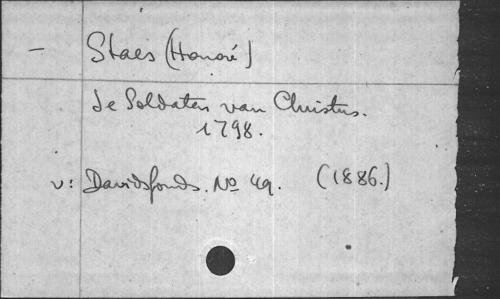 – Staes (Honoré)
De Soldaten van Christus.
1798.
v: Davidsfonds. No 49. (1886.)